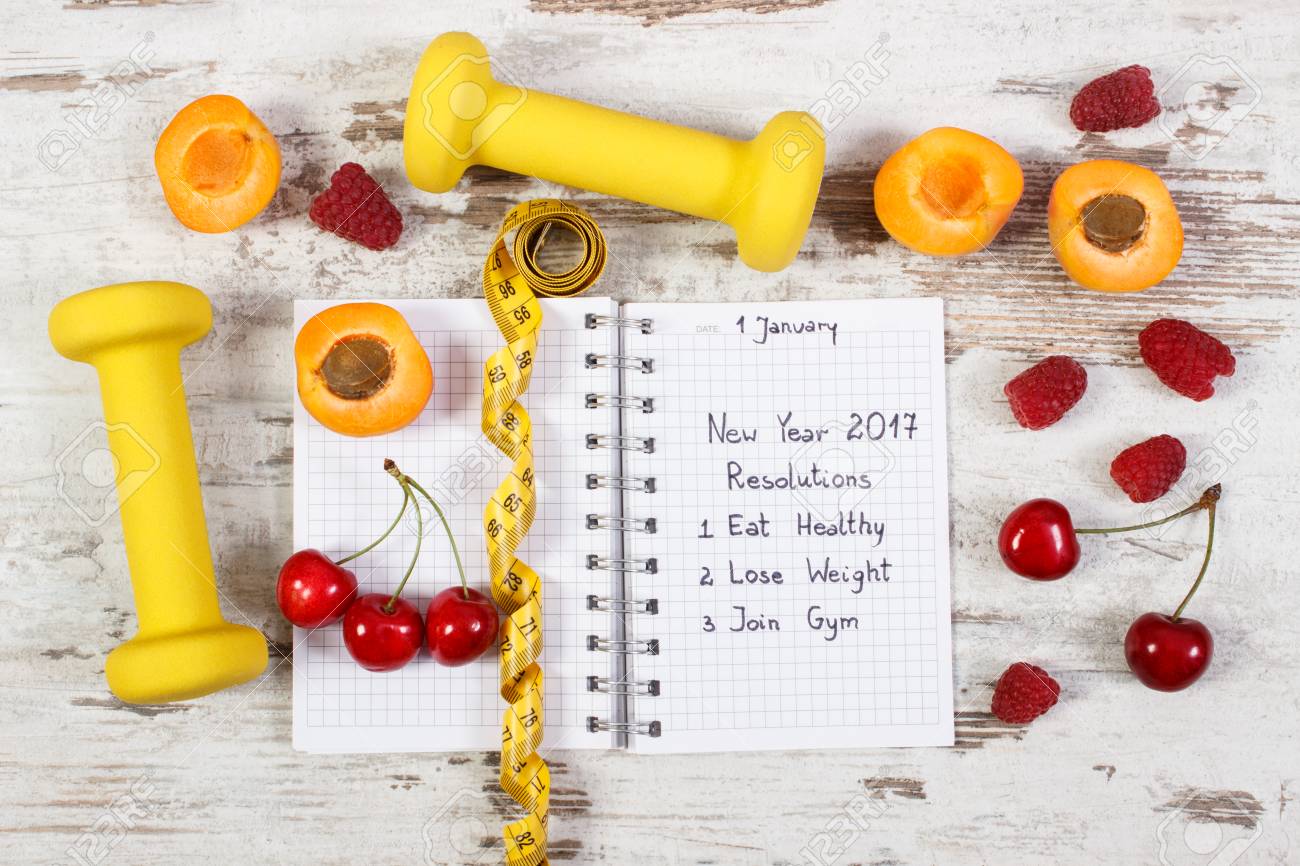 DATE: 1 January
New Year 2017
Resolutions
1 Eat Healthy
2 Lose Weight
3 Join Gym
97
96
95
58
59
68
64
65
66
82
71
72
76
77
71
82
123RF